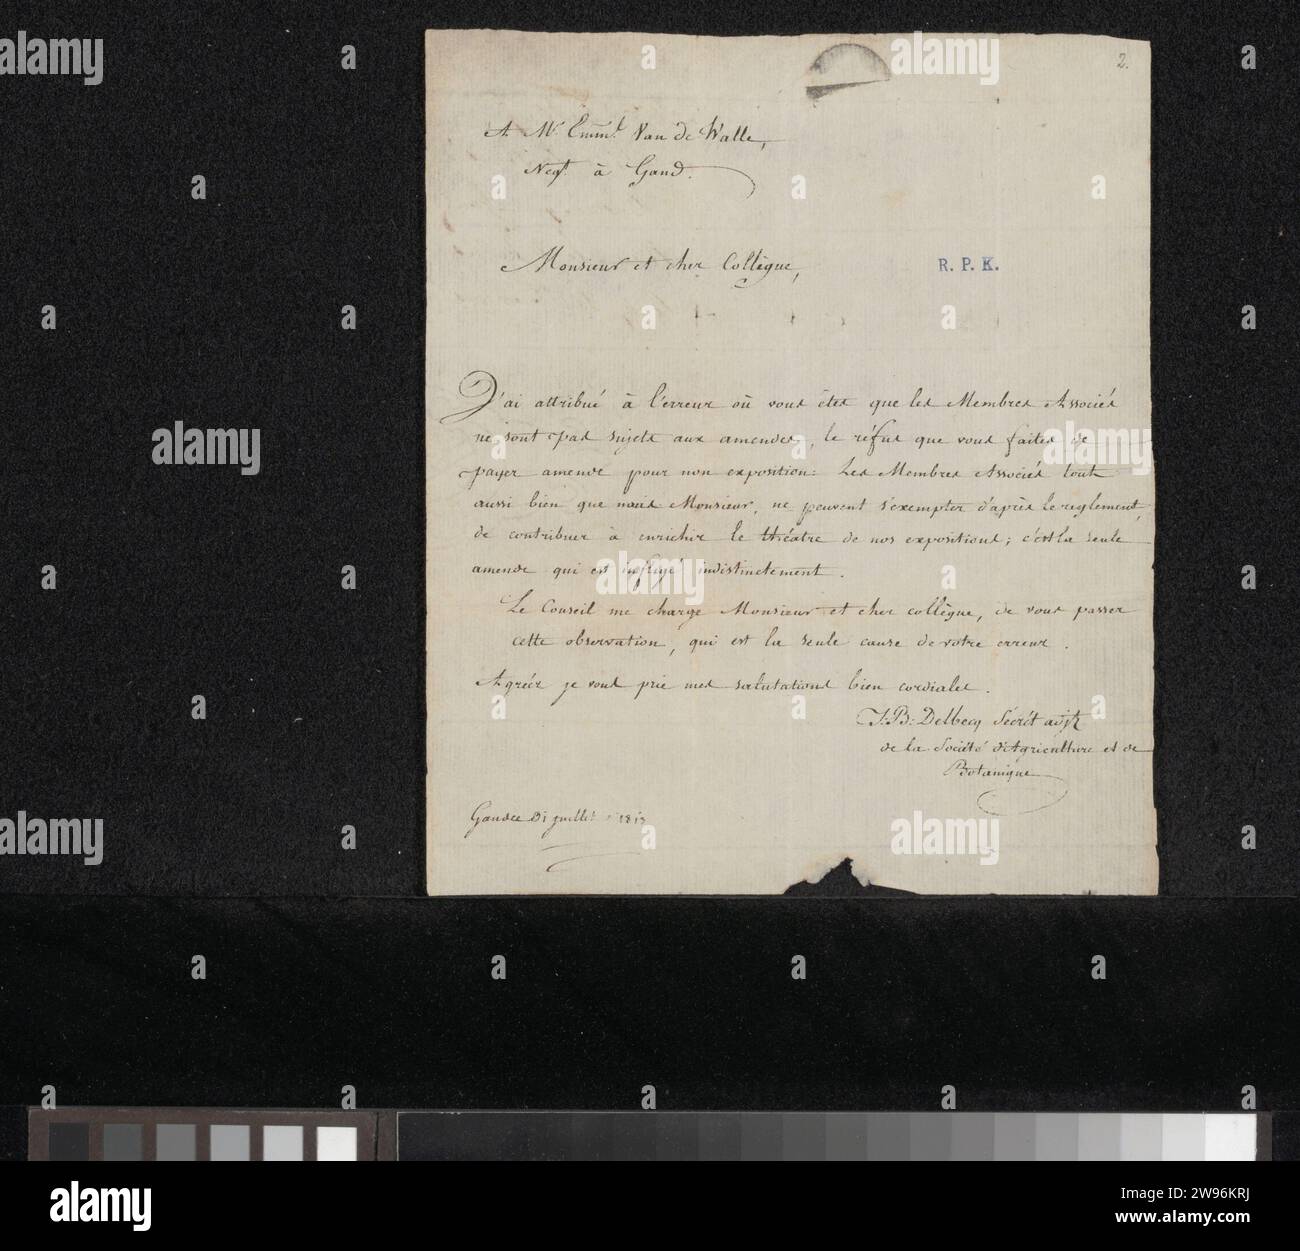 2.
A Mr. Emml. Van de Walle,
Negt. à Gand.
Monsieur et cher Collègue,
R. P. K.
J'ai attribué à l'erreur où vous êtes que les Membres Associés
ne sont pas sujets aux amendes, le réfus que vous faites de
payer amende pour non exposition: Les Membres Associés tout
aussi bien que nous Monsieur, ne peuvent s'exempter d'après le reglement,
de contribuer à enrichir le théatre de nos expositions; c'est la seule
amende qui est infligé indistinctement.
Le Conseil me charge Monsieur et cher collègue, de vous passer
cette observation, qui est la seule cause de votre erreur.
Agréez je vous prie mes salutations bien cordiales.
J: B: Delbecq Sécrét adjt
de la Société d'Agriculture et de
Botanique
Gand ce 31 juillet 1813
a
alamy
Image ID: 2W96KRJ
www.alamy.com